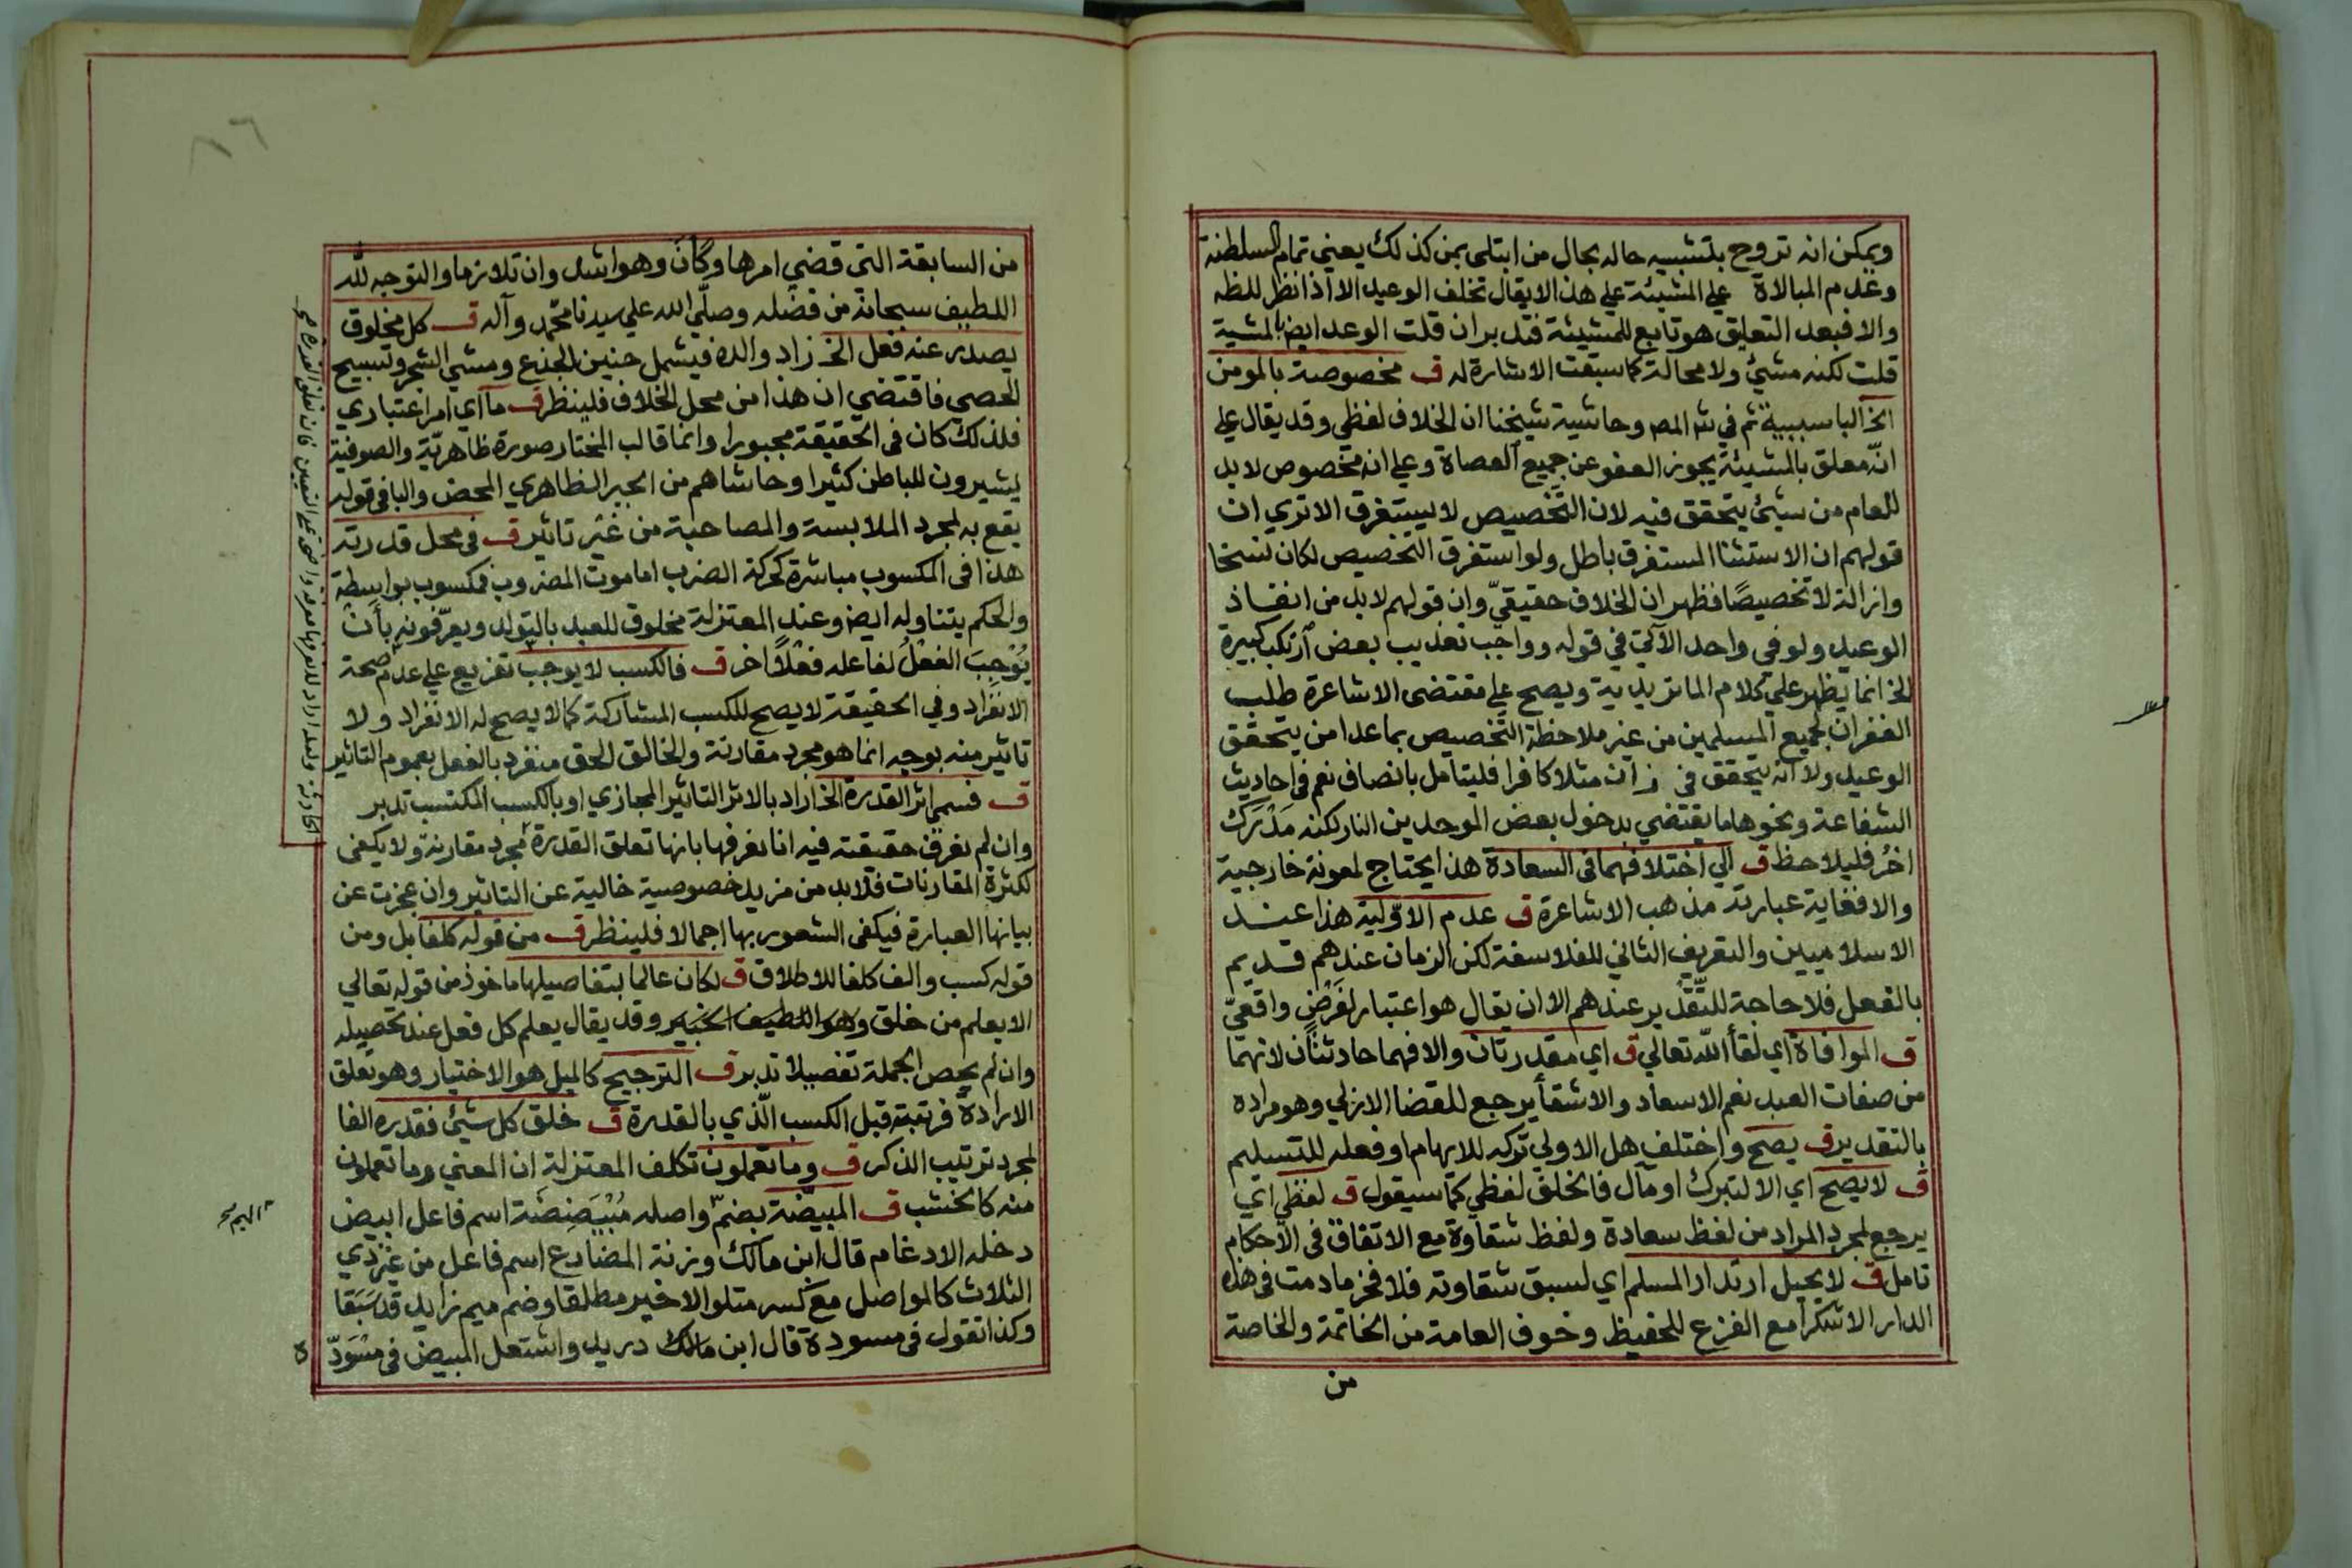 ويمكن انه تروح بتشبيه حاله بحال من ابتلى بمن كذلك يعني تمام السلطنة
وعدم المبالاة على المشيئة على هذا لا يقال تخلف الوعيد الا اذا نظر للظ
والا فبعد التعليق هو تابع للمشيئة فتدبر ان قلت الوعد ايض بالمشية
قلت لكنه مشئ ولا محالة كما سبقت الاشارة له ق مخصوصة بالمومن
الخ الباسببية ثم في شر المص وحاشية شيخنا ان الخلاف لفظي وقد يقال على
انه معلق بالمشيئة يجوز العفو عن جميع العصاة وعلى انه مخصوص لابد
للعام من شيئ يتحقق فيه لان التخصيص لا يستغرق الا تري ان
قولهم ان الاستثنا المستغرق باطل ولو استغرق التخصيص لكان نسخا
وازالة لا تخصيصًا فظهر ان الخلاف حقيقيّ وان قولهم لابد من انفاذ
الوعيد ولو في واحد الآتي في قوله وواجب تعذيب بعض ارتكب كبيرة
الخ انما يظهر علي كلام الماتريدية ويصح على مقتضى الاشاعرة طلب
الغفران لجميع المسلمين من غير ملاحظة التخصيص بما عدا من يتحقق
الوعيد ولا انه يتحقق في زان مثلا كافرا فليتامل بانصاف نعم في احاديث
الشفاعة ونحوها ما يقتضي بدخول بعض الموحدين النار لكنه مَدْرَك
اخرُ فليلاحظ ق الي اختلافهما في السعادة هذا يحتاج لمعونة خارجية
والا فغاية عبارته مذهب الاشاعرة ق عدم الاوّلية هذا عند
الاسلاميين والتعريف الثاني للفلاسفة لكن الزمان عندهم قديم
بالفعل فلا حاجة للتَّقْدير عندهم الا ان يقال هو اعتبار لفَرْضٍ واقعيّ
ق الموافاة اي لقأ الله تعالي ق اي مقدرتان والا فهما حادثتان لانهما
من صفات العبد نعم الاسعاد والاشقأ يرجع للقضا الازلي وهو مراده
بالتقدير ق يصح واختلف هل الاولي تركه للايهام او فعله للتسليم
ق لا يصح اي الا لتبرك او مآل فالخلف لفظي كما سيقول ق لفظي اي
يرجع لمجرد المراد من لفظ سعادة ولفظ شقاوة مع الاتفاق في الاحكام
تامل ق لا يحيل ارتداد المسلم اي لسبق شقاوته فلا فخر ما دمت في هذه
الدار الا شكرا مع الفزع للحفيظ وخوف العامة من الخاتمة والخاصة
من
من السابقة التي قضي امرها وكان وهو اشد وان تلازما والتوجه لله
اللطيف سبحانه من فضله وصلّي الله علي سيدنا محمد وآله ق كل مخلوق
يصدر عنه فعل الخ زاد والده فيشمل حنين الجذع ومشي الشجر وتسبيح
الحصي فاقتضي ان هذا من محل الخلاف فلينظر ق ما اي امر اعتباري
فلذلك كان في الحقيقة مجبورا وانما قالب المختار صورة ظاهريّة والصوفية
يشيرون للباطن كثيرا وحاشاهم من الجبر الظاهري المحض والبا في قوله
يقع به لمجرد الملابسة والمصاحبة من غير تاثير ق في محل قدرته
هذا في المكسوب مباشرة كحركة الضرب اما موت المضروب فمكسوب بواسطة
والحكم يتناوله ايض وعند المعتزلة مخلوق للعبد بالتولد ويعرّفونه بأن
يُوْجِبَ الفعْلُ لفاعله فعْلًا اخر ق فالكسب لا يوجب تفريع علي عدم صحة
الانفراد وفي الحقيقة لا يصح للكسب المشاركة كما لا يصح له الانفراد ولا
تاثير منه بوجه انما هو مجرد مقارنة والخالق الحق منفرد بالفعل بعموم التاثير
ق فسمى اثر القدرة الخ اراد بالاثر التاثير المجازي او بالكسب المكتسب تدبر
وان لم نعرف حقيقته فيه انا نعرفها بانها تعلق القدرة مجرد مقارنة ولا يكفي
لكثرة المقارنات فلابد من مزيد خصوصية خالية عن التاثير وان عجزت عن
بيانها العبارة فيكفي الشعور بها اجمالا فلينظر ق من قوله كلفا بل ومن
قوله كسب والف كلفا للاطلاق ق لكان عالما بتفاصيلها ماخوذ من قوله تعالي
الا يعلم من خلق وهو اللطيف الخبير وقد يقال يعلم كل فعل عند تحصيله
وان لم يحص الجملة تفصيلا تدبر ق الترجيح كالميل هو الاختيار وهو تعلق
الارادة فرتبته قبل الكسب الّذي بالقدرة ق خلق كل شيئ فقدره الفا
لمجرد ترتيب الذكر ق وما تعملون تكلف المعتزلة ان المعني وما تعملون
منه كالخشب ق المبيضّة بضمّ واصله مُبْيَضِضَة اسم فاعل ابيض
دخله الادغام قال ابن مالك وزنة المضارع اسم فاعل من غير ذي
الثلاث كالمواصل مع كسر متلو الاخير مطلقا وضم ميم زايد قد سَبَقا
وكذا تقول في مسودة قال ابن مالك دريد واشتعل المبيض في مُسْوَدّ
ه